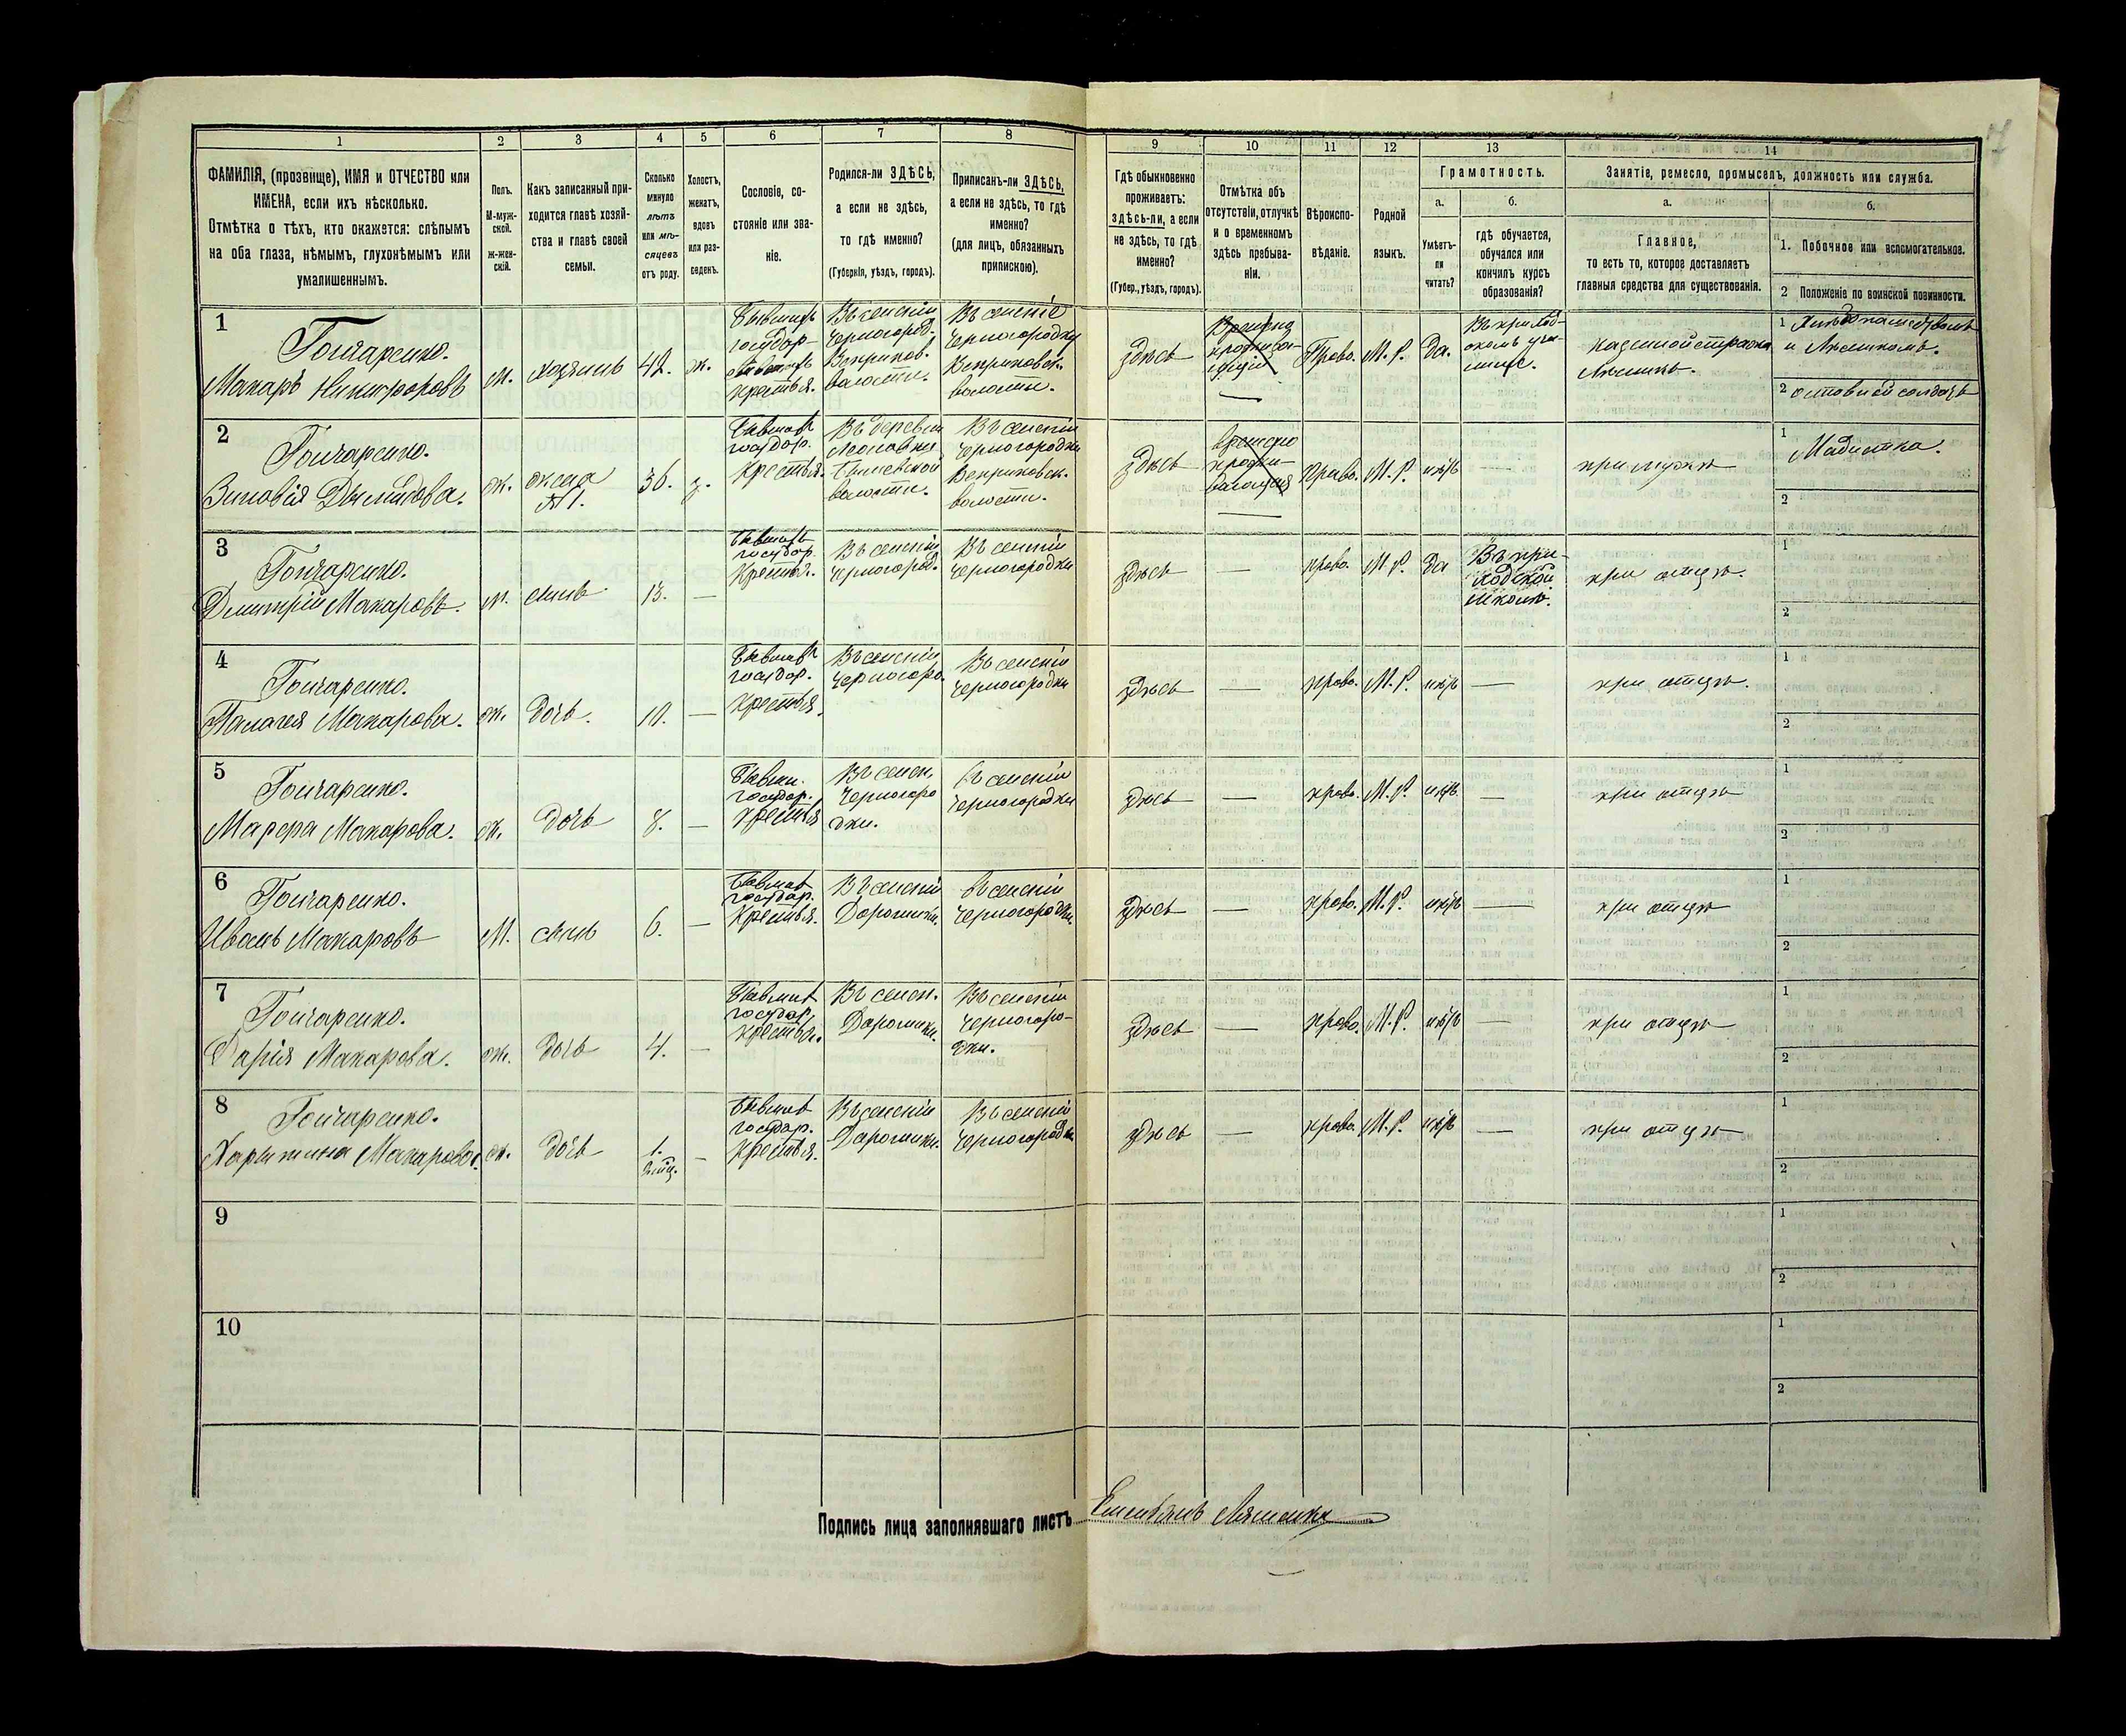 1 2 3 4 5 6 7 8 9 10 11 12 13 14
ФАМИЛІЯ, (прозвище), ИМЯ и ОТЧЕСТВО или
ИМЕНА, если ихъ нѣсколько.
Отмѣтка о тѣхъ, кто окажется: слѣпымъ
на оба глаза, нѣмымъ, глухонѣмымъ или
умалишеннымъ.
Полъ.
М-муж-
ской.
ж-жен-
скій.
Какъ записанный при-
ходится главѣ хозяй-
ства и главѣ своей
семьи.
Сколько
минуло
лѣтъ
или мѣ-
сяцевъ
отъ роду.
Холостъ,
женатъ,
вдовъ
или раз-
веденъ.
Сословіе, со-
стояніе или зва-
ніе.
Родился-ли ЗДѢСЬ,
а если не здѣсь,
то гдѣ именно?
(Губернія, уѣздъ, городъ).
Приписанъ-ли ЗДѢСЬ,
а если не здѣсь, то гдѣ
именно?
(для лицъ, обязанныхъ
припискою).
Гдѣ обыкновенно
проживаетъ:
здѣсь-ли, а если
не здѣсь, то гдѣ
именно?
(Губер., уѣздъ, городъ).
Отмѣтка объ
отсутствіи, отлучкѣ
и о временномъ
здѣсь пребыва-
ніи.
Вѣроиспо-
вѣданіе.
Родной
языкъ.
Грамотность.
а.
Умѣетъ-
ли
читать?
б.
гдѣ обучается,
обучался или
кончилъ курсъ
образованія?
Занятіе, ремесло, промыселъ, должность или служба.
а.
Главное,
то есть то, которое доставляетъ
главныя средства для существованія.
б.
1. Побочное или вспомогательное.
2 Положеніе по воинской повинности.
1
Гончаренко.
Макаръ Никифоровъ
м.
хозяинъ
42.
ж.
Бывшихъ
государ-
крестья.
Въ селеніи
Черногород.
Веприков.
волости.
Въ селеніе
Черногородки
Веприковск.
волости.
здѣсь
Временно
Право.
М. Р.
да.
Въ приход-
скомъ учи-
лище.
казенной стражи
Лѣсникъ.
1
и Лѣсникомъ.
2
2
Гончаренко.
Зиновія Демидова.
ж.
жена
№ 1.
36.
з.
Бывшихъ
государ.
крестья.
Въ деревни
волости.
Въ селеніи
Черногородки
Веприковск.
волости.
здѣсь
временно
прожи-
вающая
право.
М. Р.
нѣтъ
—
при мужѣ
1
2
3
Гончаренко.
Дмитрій Макаровъ.
м.
сынъ
13.
—
Бывшихъ
государ.
крестья.
Въ селеніи
Черногород.
Въ селеніи
Черногородки
здѣсь
—
право.
М. Р.
да
Въ при-
ходской
школѣ.
при отцѣ.
1
2
4
Гончаренко.
Палагея Макарова.
ж.
дочь.
10.
—
Бывших
государ.
крестья.
Въ селеніи
Черногоро.
Въ селеніи
Черногородки
здѣсь
—
право.
М. Р.
нѣтъ
—
при отцѣ.
1
2
5
Гончаренко.
Марфа Макарова.
ж.
дочь
8.
—
Бывши.
государ.
крестья
Въ селен.
Черногоро
дки.
Въ селеніи
Черногородки
здѣсь
—
право.
М. Р.
нѣтъ
—
при отцѣ
1
2
6
Гончаренко.
Иванъ Макаровъ
М.
сынъ
6.
—
Бывших
государ.
крестья.
Въ селеніи
Дорошики.
Въ селеніи
Черногородки.
здѣсь
—
право.
М. Р.
нѣтъ
—
при отцѣ
1
2
7
Гончаренко.
Дарія Макарова.
ж.
дочь
4.
—
Бывших
государ.
крестья.
Въ селен.
Дорошики.
Въ селеніи
Черногоро-
дки.
здѣсь
—
право.
М. Р.
нѣтъ
—
при отцѣ
1
2
8
Гончаренко.
Харитина Макарова.
ж.
дочь
1.
—
Бывших
государ.
крестья.
Въ селеніи
Дорошики.
Въ селеніи
Черногородки
здѣсь
—
право.
М. Р.
нѣтъ
—
при отцѣ
1
2
9
1
2
10
1
2
Подпись лица заполнявшаго листъ